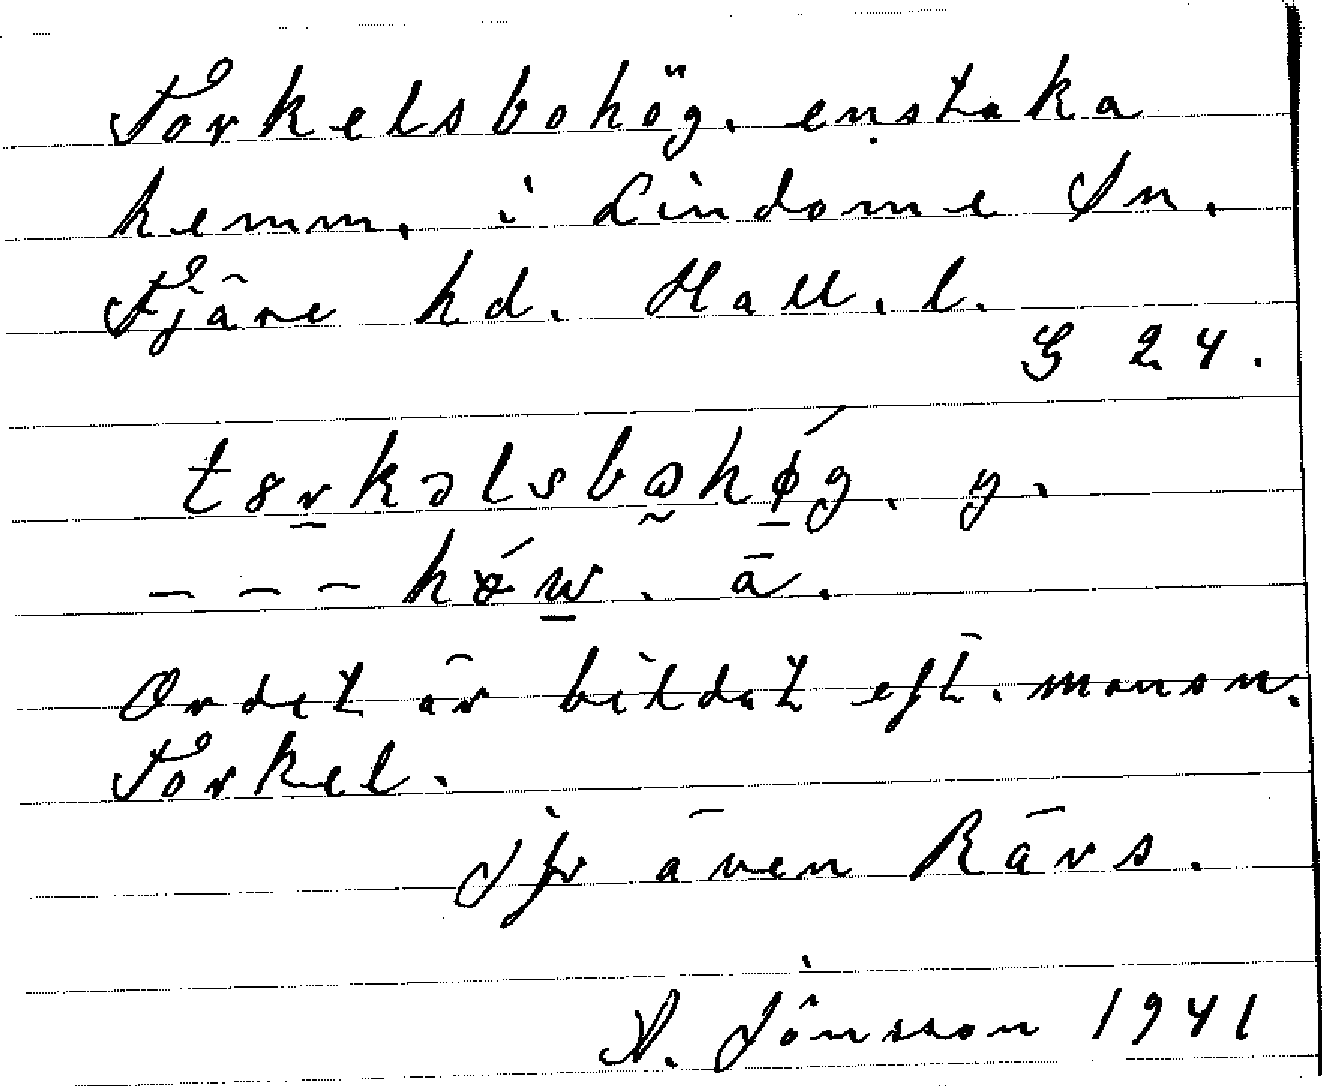 Torkelsbohög. enstaka
hemm. i Lindome Sn.
Fjäre hd. Hall. l.
G 24.
t8r̲kəlsba̰hǿ̲g. y.
– – – hǿw̲. ä.
Ordet är bildat eft. mansn.
Torkel.
Jfr även Rävs.
A. Jönsson 1941